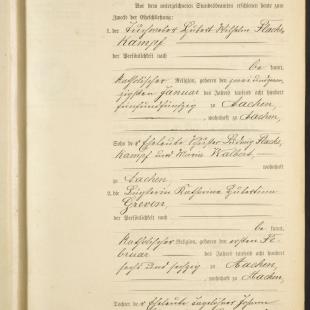 Vor dem unterzeichneten Standesbeamten erschienen heute zum
Zweck der Eheschließung:
1. der Hubert Wilhelm Flach-
kampf
der Persönlichkeit nach
be kannt,
katholischer Religion, geboren den zwei und zwan-
zigsten Januar des Jahres tausend acht hundert
fünfundfünfzig zu Aachen,
, wohnhaft zu Aachen,
Sohn der Eheleute Ludwig Flach-
kampf und Maria
wohnhaft
zu Aachen
2. die Katharina Hubertina
Greven
der Persönlichkeit nach
be kannt,
katholischer Religion, geboren den ersten Fe-
bruar des Jahres tausend acht hundert
sechs und sechzig zu Aachen,
, wohnhaft zu Aachen,
Tochter der Eheleute Tagelöhner Johann